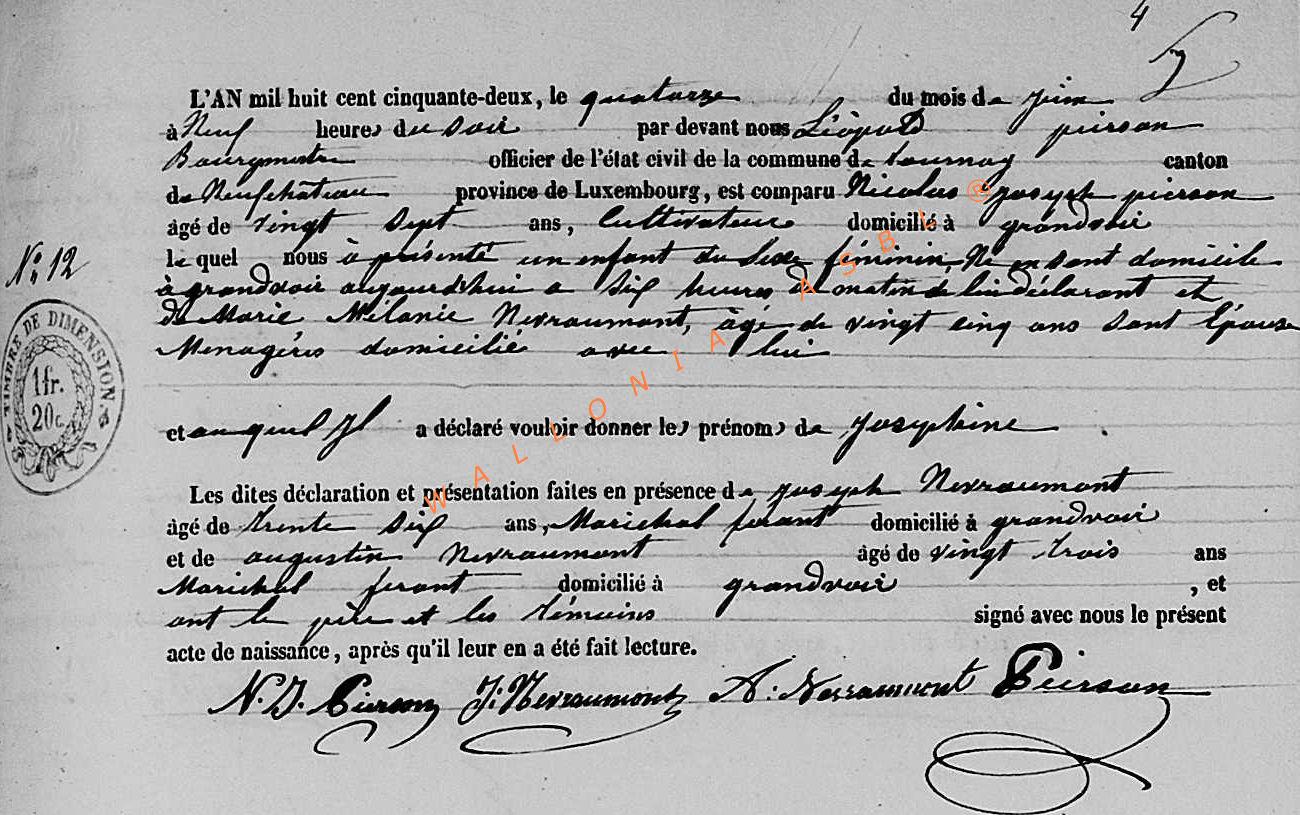 4
L'AN mil huit cent cinquante-deux, le quatorze du mois de juin
à Neuf heures du soir par devant nous Léopold pierson
Bourgmestre officier de l'état civil de la commune de tournay canton
de Neufchâteau province de Luxembourg, est comparu Nicolas joseph pierson
âgé de vingt sept ans, Cultivateur domicilié à grandvoir
le quel nous à présenté un enfant du Sexe féminin, Né en sont domicile
à grandvoir aujourd'hui a Six heures du matin de lui déclarant et
de Marie Mélanie Nevraumont, âgé de vingt cinq ans sont Epouse
Menagére domicilié avec lui
et auquel Il a déclaré vouloir donner les prénoms de Josephine
Les dites déclaration et présentation faites en présence de joseph Nevraumont
âgé de trente six ans, Marichal ferant domicilié à grandvoir
et de augustin Nevraumont âgé de vingt trois ans
Marichal ferant domicilié à grandvoir, et
ont le père et les témoins signé avec nous le présent
acte de naissance, après qu'il leur en a été fait lecture.
N. J. Pierson J: Nevraumont A: Nevraumont Pierson
No 12
TIMBRE DE DIMENSION
1 fr.
20 c.
WALLONIA ASBL ®